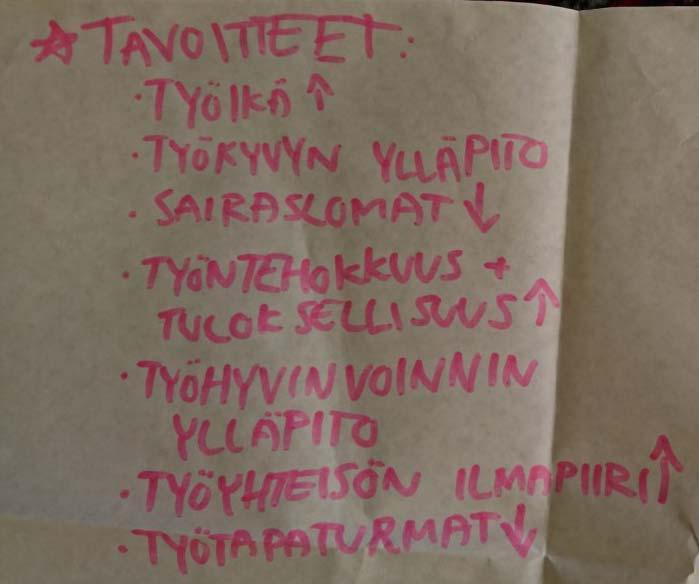 ☆ TAVOITTEET:
· TYÖIKÄ ↑
· TYÖKYVYN YLLÄPITO
· SAIRASLOMAT ↓
· TYÖNTEHOKKUUS +
TULOKSELLISUUS ↑
· TYÖHYVINVOINNIN
YLLÄPITO
· TYÖYHTEISÖN ILMAPIIRI ↑
· TYÖTAPATURMAT ↓